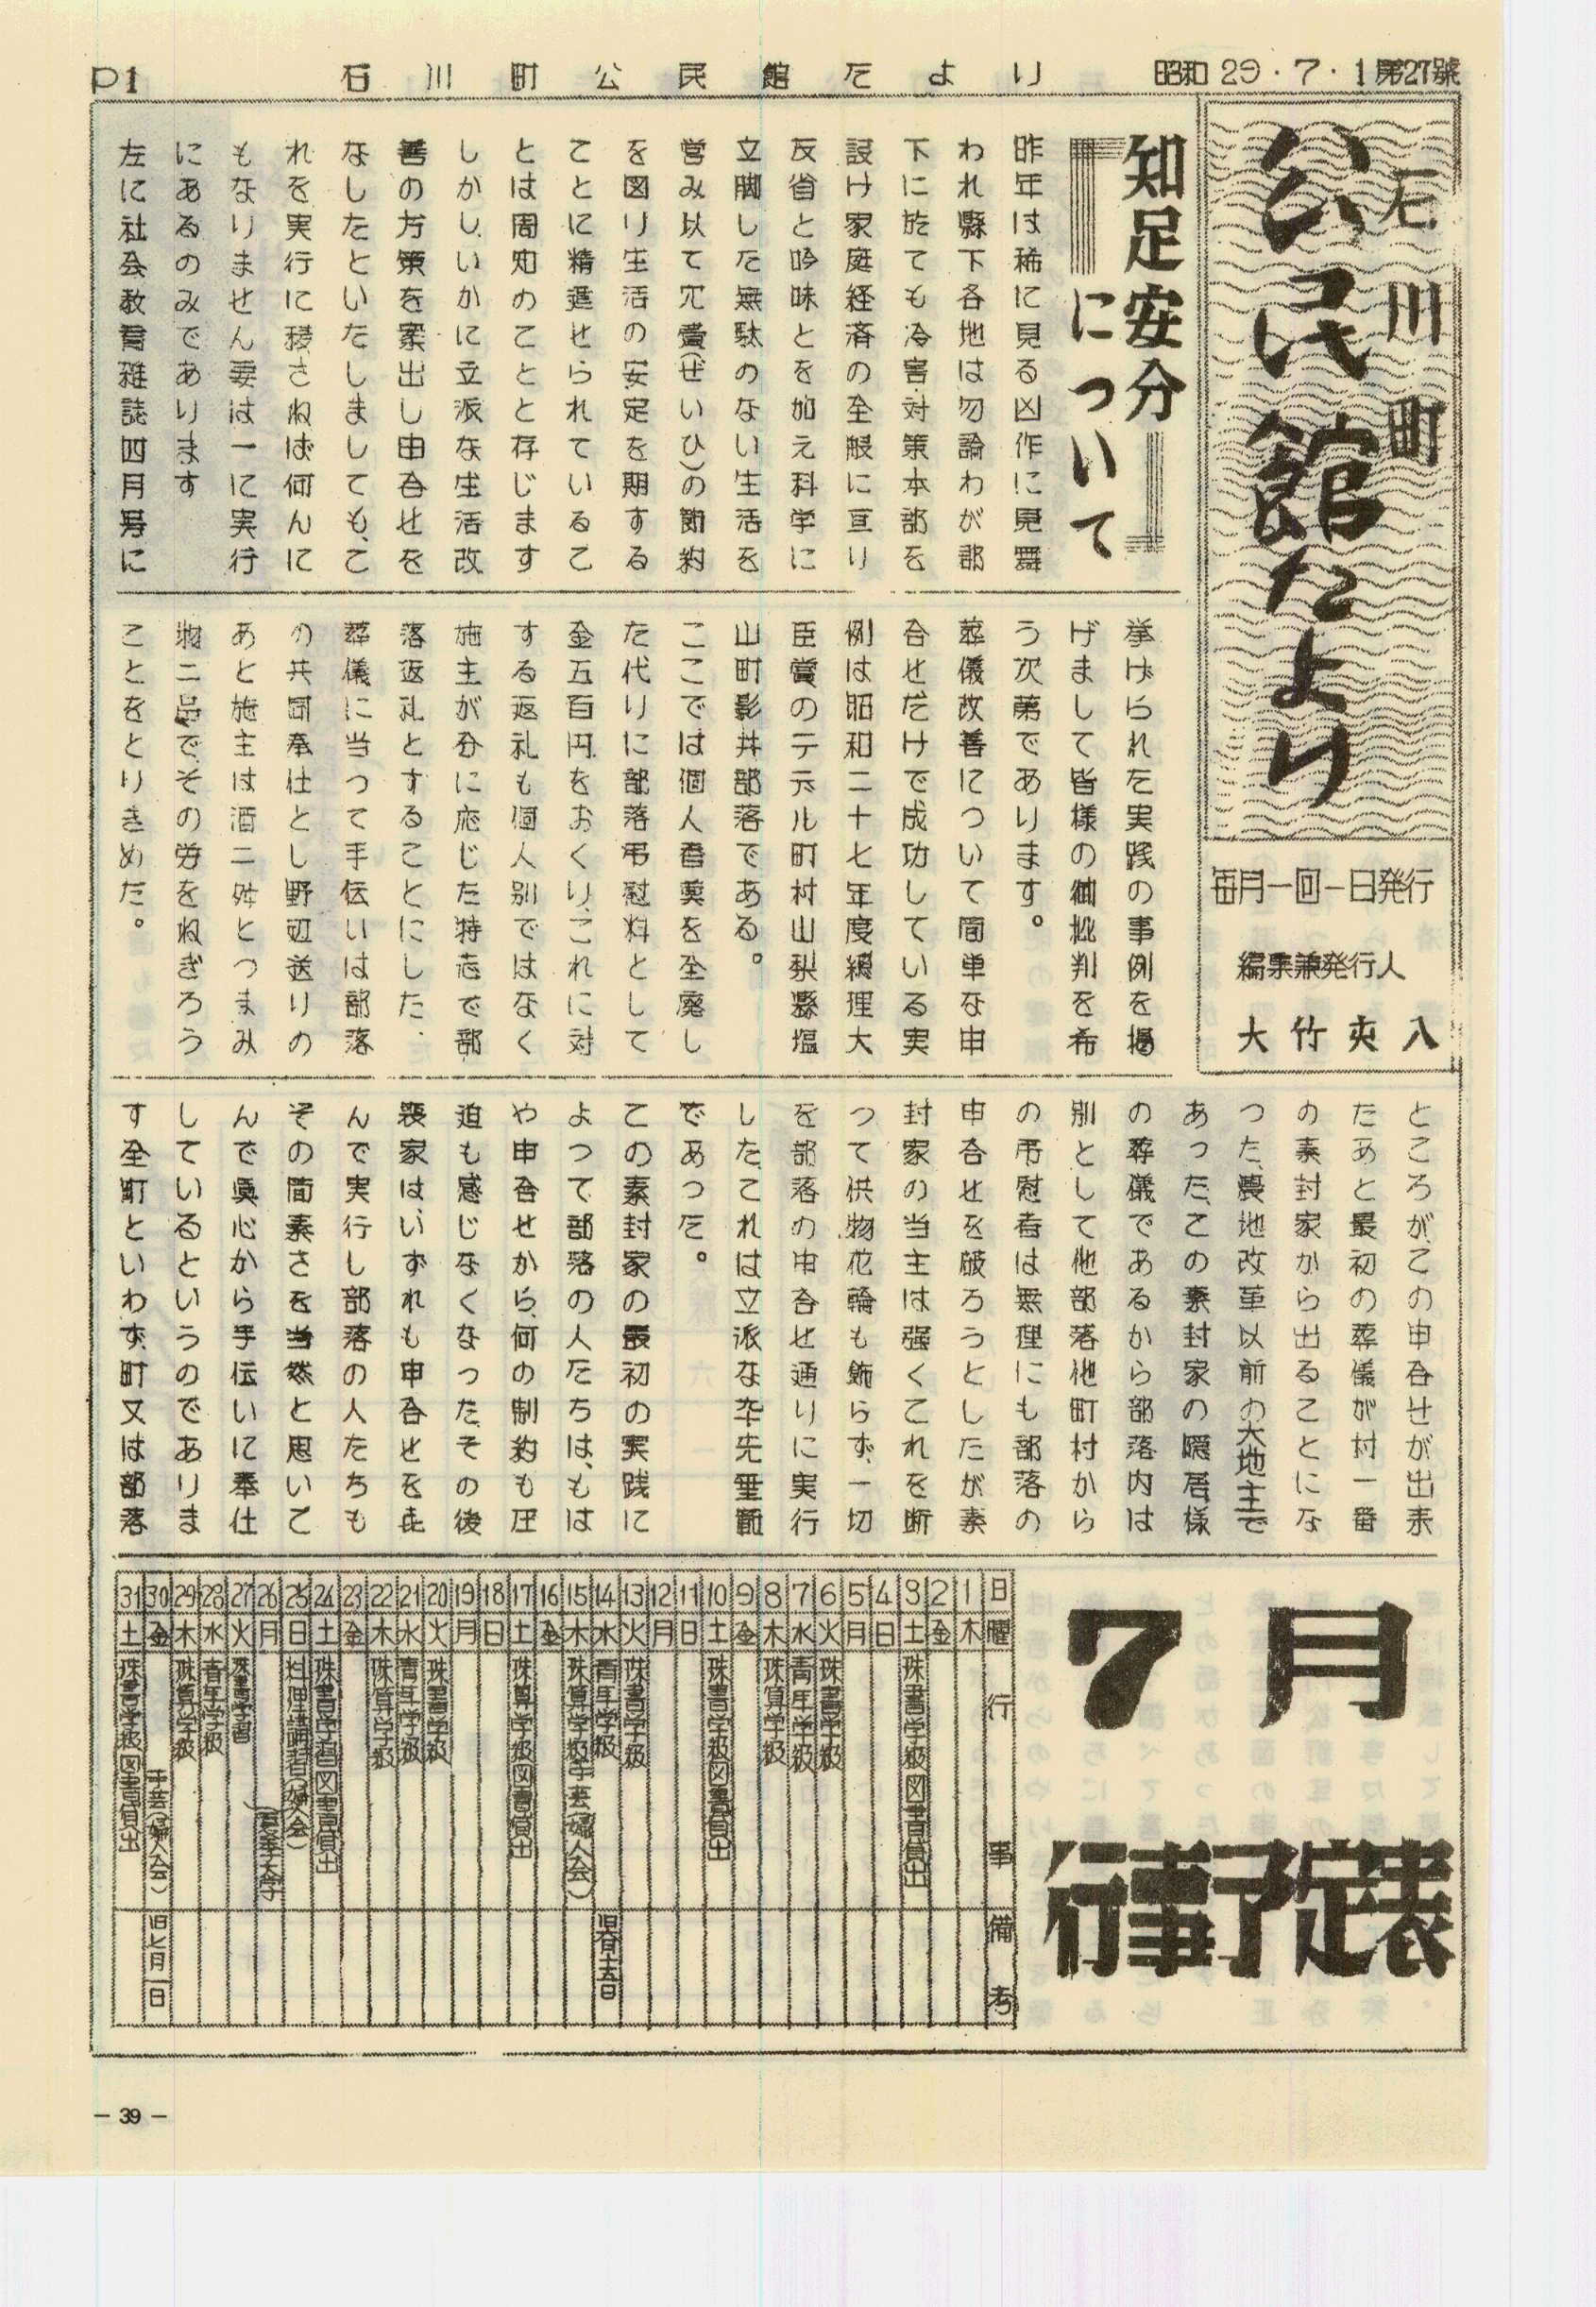 P1 石川町公民館だより 昭和29・7・1第27號
石川町
公民館だより
毎月一回一日発行
編集兼発行人
大竹夾八
知足安分
について
昨年は稀に見る凶作に見舞
われ縣下各地は勿論わが郡
下に於ても冷害対策本部を
設け家庭経済の全般に亘り
反省と吟味とを加え科学に
立脚した無駄のない生活を
営み以て冗費(ぜいひ)の節約
を図り生活の安定を期する
ことに精進せられているこ
とは周知のことと存じます
しかし、いかに立派な生活改
善の方策を案出し申合せを
なしたといたしましても、こ
れを実行に移さねば何んに
もなりません要は一に実行
にあるのみであります
左に社会教育雑誌四月号に
挙げられた実践の事例を掲
げまして皆様の御批判を希
う次第であります。
葬儀改善について簡単な申
合せだけで成功している実
例は昭和二十七年度總理大
臣賞のテテル町村山梨縣塩
山町影井部落である。
ここでは個人香奠を全廃し
た代りに部落弔慰料として
金五百円をおくり、これに対
する返礼も個人別ではなく
施主が分に応じた特志で部
落返礼とすることにした、
葬儀に当つて手伝いは部落
の共同奉仕とし野辺送りの
あと施主は酒二舛とつまみ
物二品で、その労をねぎろう
ことをとりきめた。
ところが、この申合せが出来
たあと最初の葬儀が村一番
の素封家から出ることにな
つた、農地改革以前の大地主で
あった、この素封家の隠居様
の葬儀であるから部落内は
別として他部落他町村から
の弔慰者は無理にも部落の
申合せを破ろうとしたが素
封家の当主は强くこれを断
つて供物花輪も飾らず、一切
を部落の申合せ通りに実行
した、これは立派な卆先垂範
であつた。
この素封家の最初の実践に
よつて部落の人たちは、もは
や申合せから、何の制約も圧
迫も感じなくなった、その後
喪家は、いずれも申合せを喜
んで実行し部落の人たちも
その簡素さを当然と思いこ
んで眞心から手伝いに奉仕
しているというのでありま
す全町といわず、町又は部落
7月
行事予定表
日 曜 行事 備考
1 木
2 金
3 土 珠書学級図書貸出
4 日
5 月
6 火 珠書学級
7 水 青年学級
8 木 珠算学級
9 金
10 土 珠書学級図書貸出
11 日
12 月
13 火 珠書学級
14 水 青年学級 旧六月十五日
15 木 珠算学級 手芸(婦人会)
16 金
17 土 珠算学級図書貸出
18 日
19 月
20 火 珠書学級
21 水 青年学級
22 木 珠算学級
23 金
24 土 珠書学習図書貸出
25 日 料理講習(婦人会)
26 月 (夏季大学
27 火 珠書学習 )
28 水 青年学級
29 木 珠算学級
30 金 手芸(婦人会) 旧七月一日
31 土 珠書学級図書貸出
— 39 —